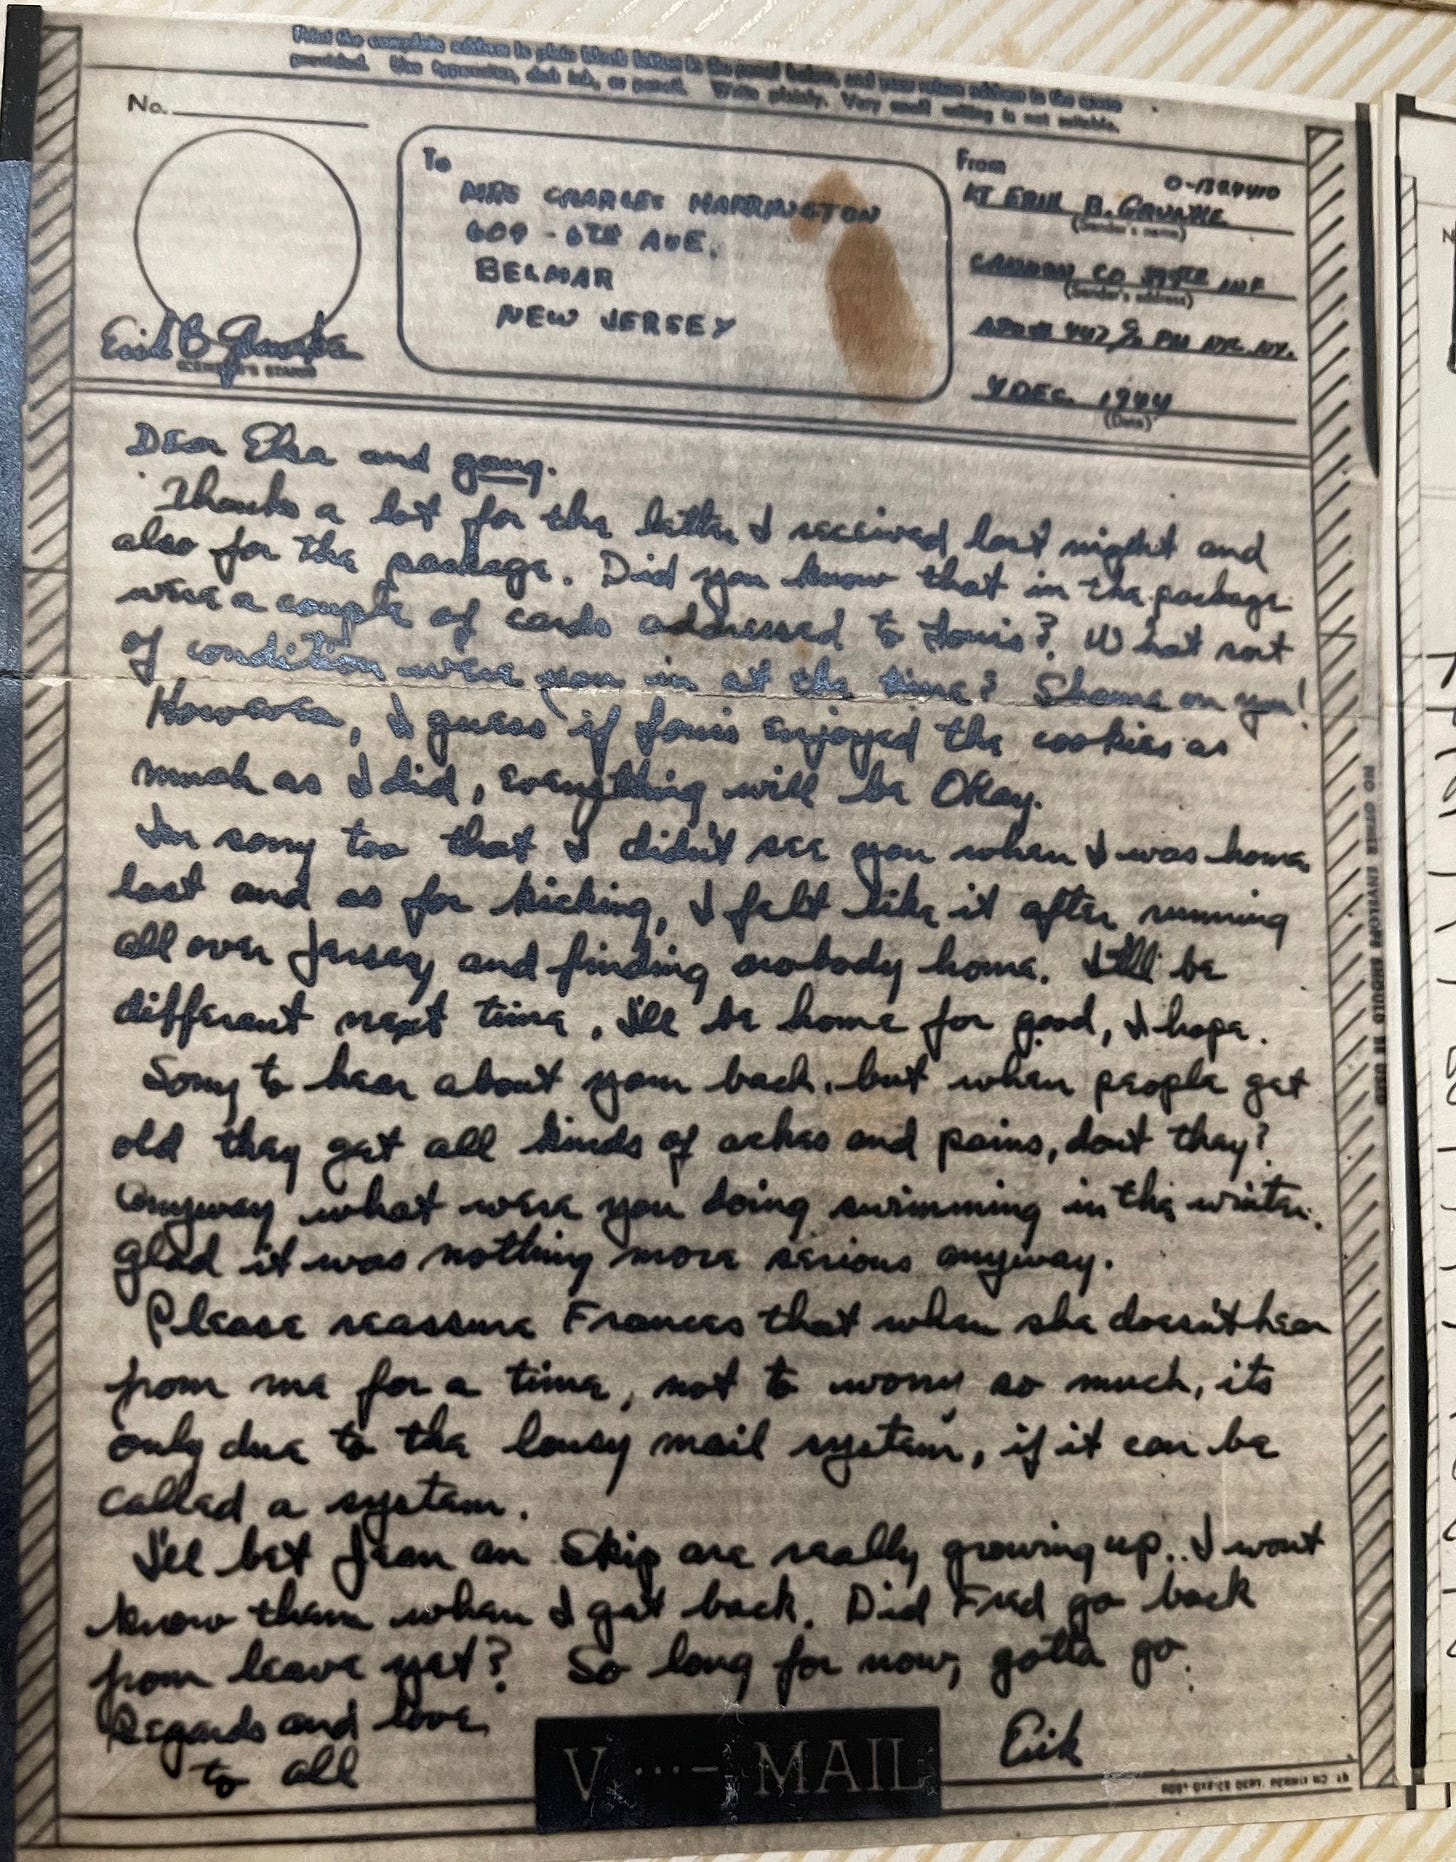 Print the complete address in plain block letters in the panel below, and your return address in the space
provided. Use typewriter, dark ink, or pencil. Write plainly. Very small writing is not suitable.
No.
To
MRS CHARLES HARRINGTON
609 - 6TH AVE.
BELMAR
NEW JERSEY
From
LT ERIK B. GRUNKE
(Sender's name)
CANNON CO INF
(Sender's address)
447 % PM NYC. NY.
DEC. 1944
(Date)
Erik B
(CENSOR'S STAMP)
Dear Elsa and gang.
Thanks a lot for the letter I received last night and
also for the package. Did you know that in the package
were a couple of cards addressed to Louis? What sort
of condition were you in at the time? Shame on you!
However, I guess if Louis enjoyed the cookies as
much as I did, everything will be Okay.
I'm sorry too that I didn't see you when I was home
last and as for kicking, I felt like it after running
all over Jersey and finding nobody home. It'll be
different next time, I'll be home for good, I hope.
Sorry to hear about your back, but when people get
old they get all kinds of aches and pains, dont they?
Anyway what were you doing swimming in the winter.
Glad it was nothing more serious anyway.
Please reassure Frances that when she doesn't hear
from me for a time, not to worry so much, its
only due to the lousy mail system, if it can be
called a system.
I'll bet Jean an Skip are really growing up.. I wont
know them when I get back. Did Fred go back
from leave yet? So long for now, gotta go.
Regards and love
to all
Erik
V ...- MAIL
POST OFFICE DEPT. PERMIT NO
NO OTHER ENVELOPE SHOULD BE USED